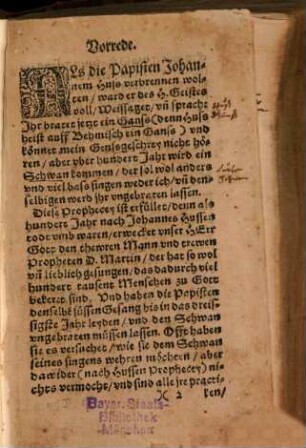 Vorrede.
ALs die Papisten Johan-
nem Huss verbrennen wol-
ten / ward er des H. Geistes
voll / Weissaget / vñ sprach:
Ihr bratet jetzt ein Ganss (denn Huss
heist auff Behmisch ein Ganss) vnd
könnet mein Gensgeschrey nicht hö-
ren / aber vber hundert Jahr wird ein
Schwan kommen / der sol wol anders
vnd viel bass singen weder ich / vñ den-
selbigen werd jhr vngebraten lassen.
Diese Prophecey ist erfüllet / denn als
hundert Jahr nach Johannes Hussen
todt vmb waren / erwecket vnser HErr
Gott den thewren Mann vnd trewen
Propheten D. Martin / der hat so wol
vñ lieblich gesungen / das dadurch viel
hundert tausent Menschen zu Gott
bekeret sind. Vnd haben die Papisten
denselbē süssen Gesang bis in das dreis-
sigste Jahr leyden / vnd den Schwan
vngebraten müssen lassen. Offt haben
sie es versuchet / wie sie dem Schwan
seines singens wehren möchten / aber
dawider (nach Hussen Prophecey) ni-
chts vermocht / vnd sind alle jre practi-
)( 2 ken /
Bayer. Staats-
Bibliothek
München